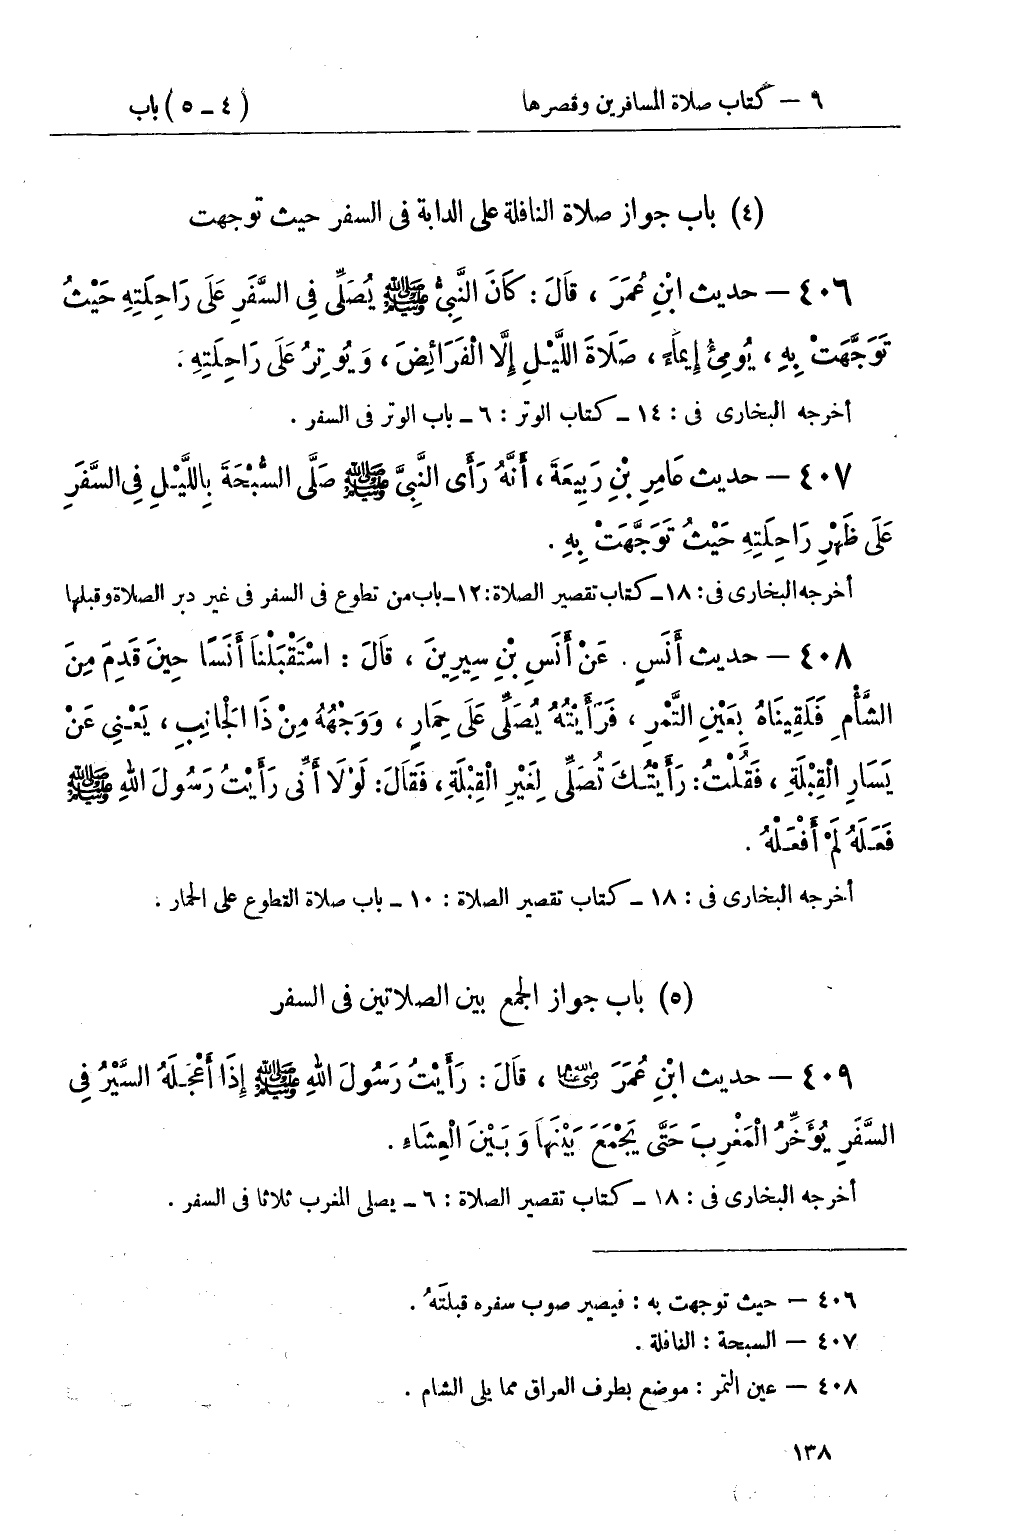 ٩ — كتاب صلاة المسافرين وقصرها
( ٤ ـ ٥ ) باب
(٤) باب جواز صلاة النافلة على الدابة فى السفر حيث توجهت
٤٠٦ — حديث ابْنِ عُمَرَ ، قَالَ : كَانَ النَّبِىُّ ﷺ يُصَلِّى فِى السَّفَرِ عَلَى رَاحِلَتِهِ حَيْثُ
تَوَجَّهَتْ بِهِ ، يُومِئُ إِيمَاءً ، صَلَاةَ اللَّيْلِ إِلَّا الْفَرَائِضَ ، وَيُوتِرُ عَلَى رَاحِلَتِهِ .
أخرجه البخارى فى : ١٤ ـ كتاب الوتر : ٦ ـ باب الوتر فى السفر .
٤٠٧ — حديث عَامِرِ بْنِ رَبِيعَةَ ، أَنَّهُ رَأَى النَّبِىَّ ﷺ صَلَّى السُّبْحَةَ بِاللَّيْلِ فِى السَّفَرِ
عَلَى ظَهْرِ رَاحِلَتِهِ حَيْثُ تَوَجَّهَتْ بِهِ .
أخرجه البخارى فى : ١٨ ـ كتاب تقصير الصلاة : ١٢ ـ باب من تطوع فى السفر فى غير دبر الصلاة وقبلها
٤٠٨ — حديث أَنَسٍ . عَنْ أَنَسِ بْنِ سِيرِينَ ، قَالَ : اسْتَقْبَلْنَا أَنَسًا حِينَ قَدِمَ مِنَ
الشَّأْمِ فَلَقِينَاهُ بِعَيْنِ التَّمْرِ ، فَرَأَيْتُهُ يُصَلِّى عَلَى حِمَارٍ ، وَوَجْهُهُ مِنْ ذَا الْجَانِبِ ، يَعْنِى عَنْ
يَسَارِ الْقِبْلَةِ ، فَقُلْتُ : رَأَيْتُكَ تُصَلِّى لِغَيْرِ الْقِبْلَةِ ، فَقَالَ : لَوْلَا أَنِّى رَأَيْتُ رَسُولَ اللهِ ﷺ
فَعَلَهُ لَمْ أَفْعَلْهُ .
أخرجه البخارى فى : ١٨ ـ كتاب تقصير الصلاة : ١٠ ـ باب صلاة التطوع على الحمار .
(٥) باب جواز الجمع بين الصلاتين فى السفر
٤٠٩ — حديث ابْنِ عُمَرَ رضي الله عنهما ، قَالَ : رَأَيْتُ رَسُولَ اللهِ ﷺ إِذَا أَعْجَلَهُ السَّيْرُ فِى
السَّفَرِ يُؤَخِّرُ الْمَغْرِبَ حَتَّى يَجْمَعَ بَيْنَهَا وَبَيْنَ الْعِشَاءِ .
أخرجه البخارى فى : ١٨ ـ كتاب تقصير الصلاة : ٦ ـ يصلى المغرب ثلاثا فى السفر .
٤٠٦ — حيث توجهت به : فيصير صوب سفره قبلتَهُ .
٤٠٧ — السبحة : النافلة .
٤٠٨ — عين التمر : موضع بطرف العراق مما يلى الشام .
١٣٨